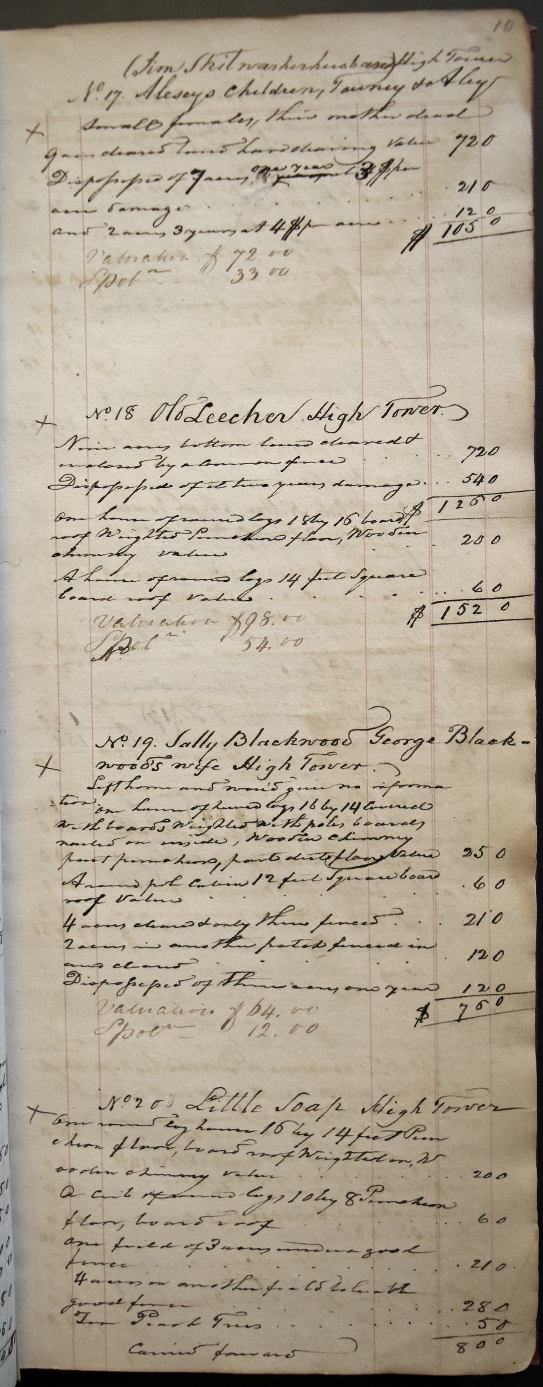 10
(Jim Skitwasherhusband) High Tower
No. 17. Aleseys Children, Towney & Alsy
Small females, their mother dead
9 acres cleared land hard clearing value 720
Dispossessed of 7 acres one year at 3$ per
acre damage 210
and 2 acres 3 years at 4$ per acre 120
$ 1050
Valuation $ 72.00
Spol.n 33.00
No. 18 Old Leecher High Tower
Nine acres bottom land cleared &
enclosed by a common fence 720
Dispossessed of it two years damage 540
$ 1260
One house of round logs 18 by 16 board
roof Weighted Puncheon floor, Wooden
chimney value 200
A house of round logs 14 feet Square
board roof value 60
$ 1520
Valuation $ 98.00
Spol.n 54.00
No. 19. Sally Blackwood George Black-
woods wife High Tower
Left home and would give no informa
tion one house of hewed logs 16 by 14 Covered
with boards Weighted with poles boards
nailed on inside, Wooden Chimney
part puncheon, part dirt floor, Value 250
A round pole Cabin 12 feet Square board
roof value 60
4 acres cleared & only three fenced 210
2 acres in another patch fenced in
and cleared 120
Dispossessed of three acres one year 120
$ 760
Valuation $ 64.00
Spol.n 12.00
No. 20 Little Soap High Tower
One round log house 16 by 14 feet Pun
cheon floor, board roof Weighted on, W
ooden chimney value 200
A crib of round logs 10 by 8 Puncheon
floor, board roof 60
One field of 3 acres under a good
fence 210
4 acres in another field
good fence 280
Ten Peach Trees 50
Carried forward 800